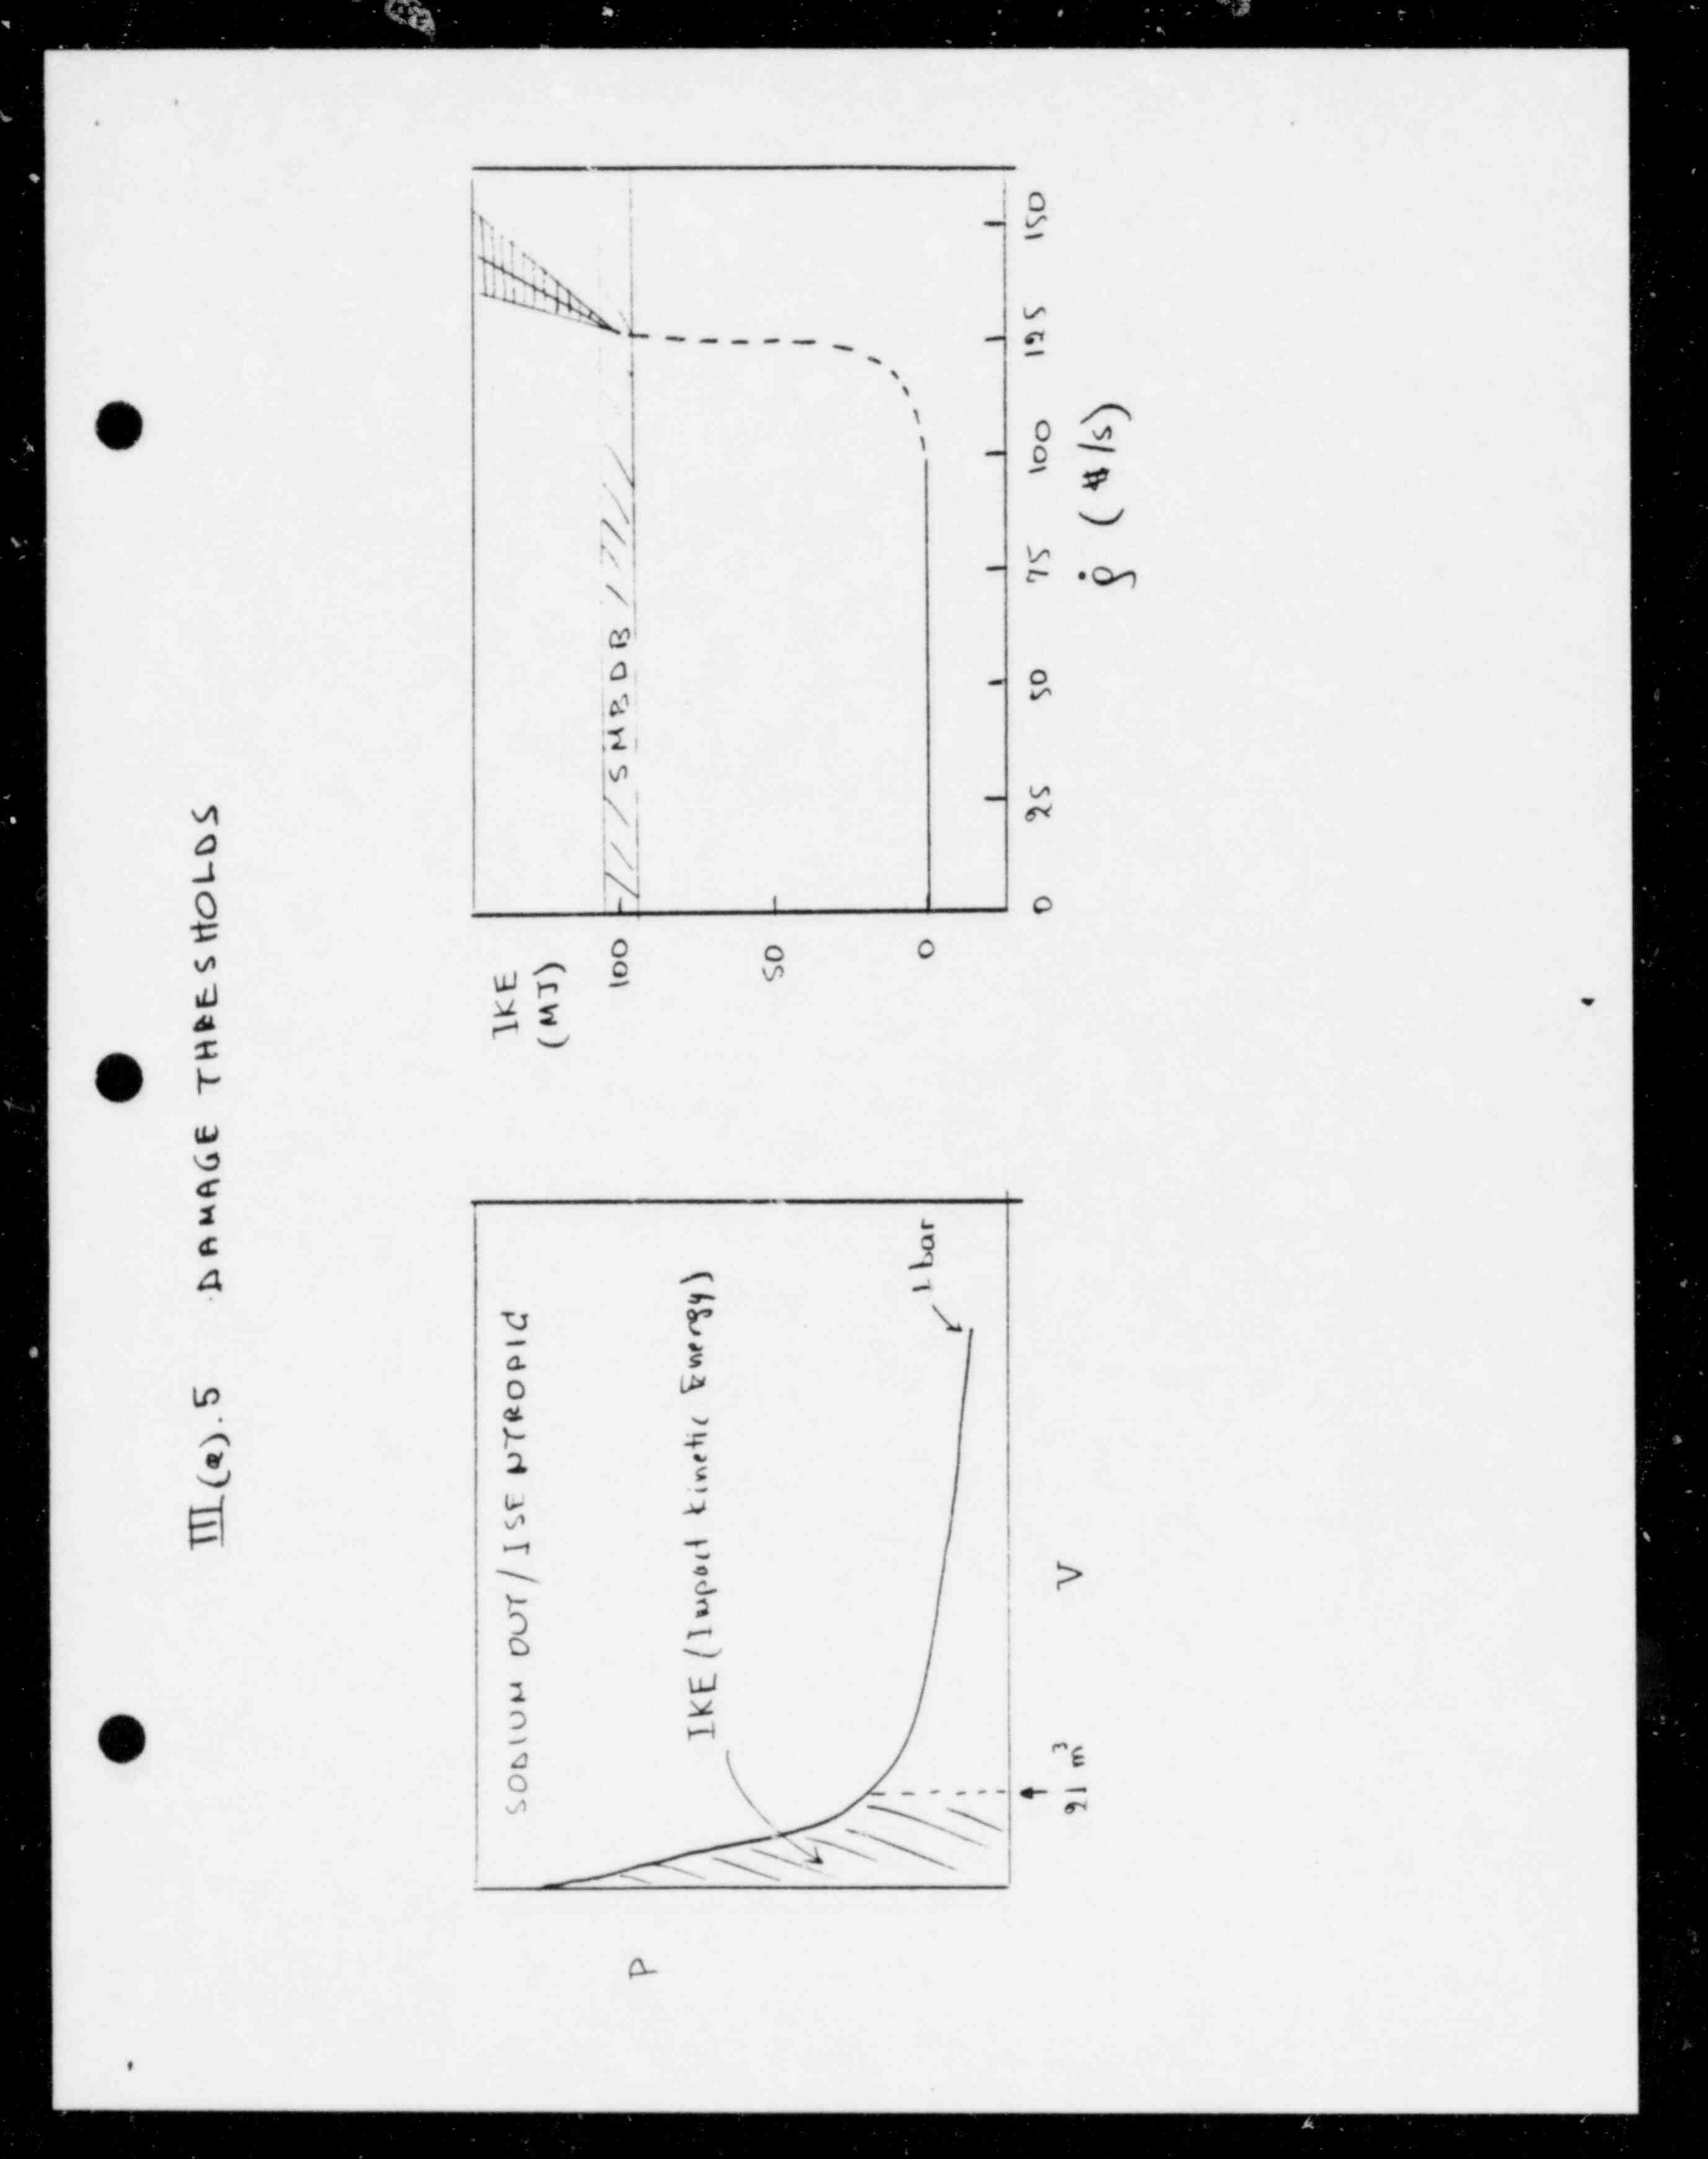 III(a).5 DAMAGE THRESHOLDS
SODIUM OUT/ISENTROPIC
IKE (Impact kinetic Energy)
1 bar
P
21 m³
V
IKE
(MJ)
100
50
0
SMBDB
0 25 50 75 100 125 150
ρ̇ ($/s)